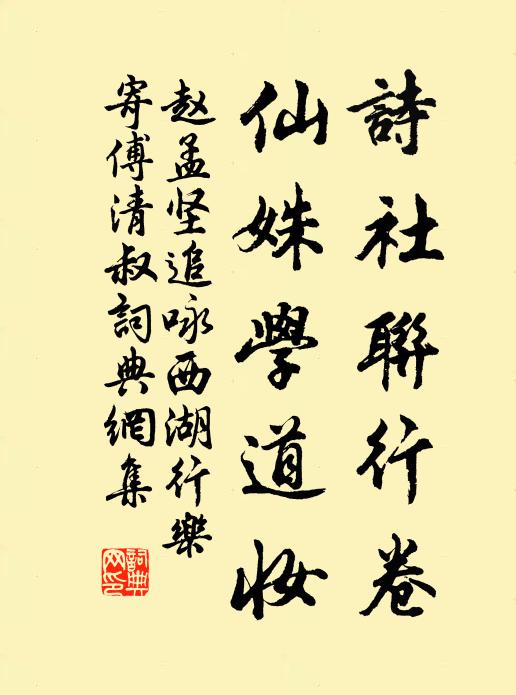 詩社聯行卷
仙姝學道妝
赵孟坚追咏西湖行樂
寄傅清叔詞典網集
詞典
网印